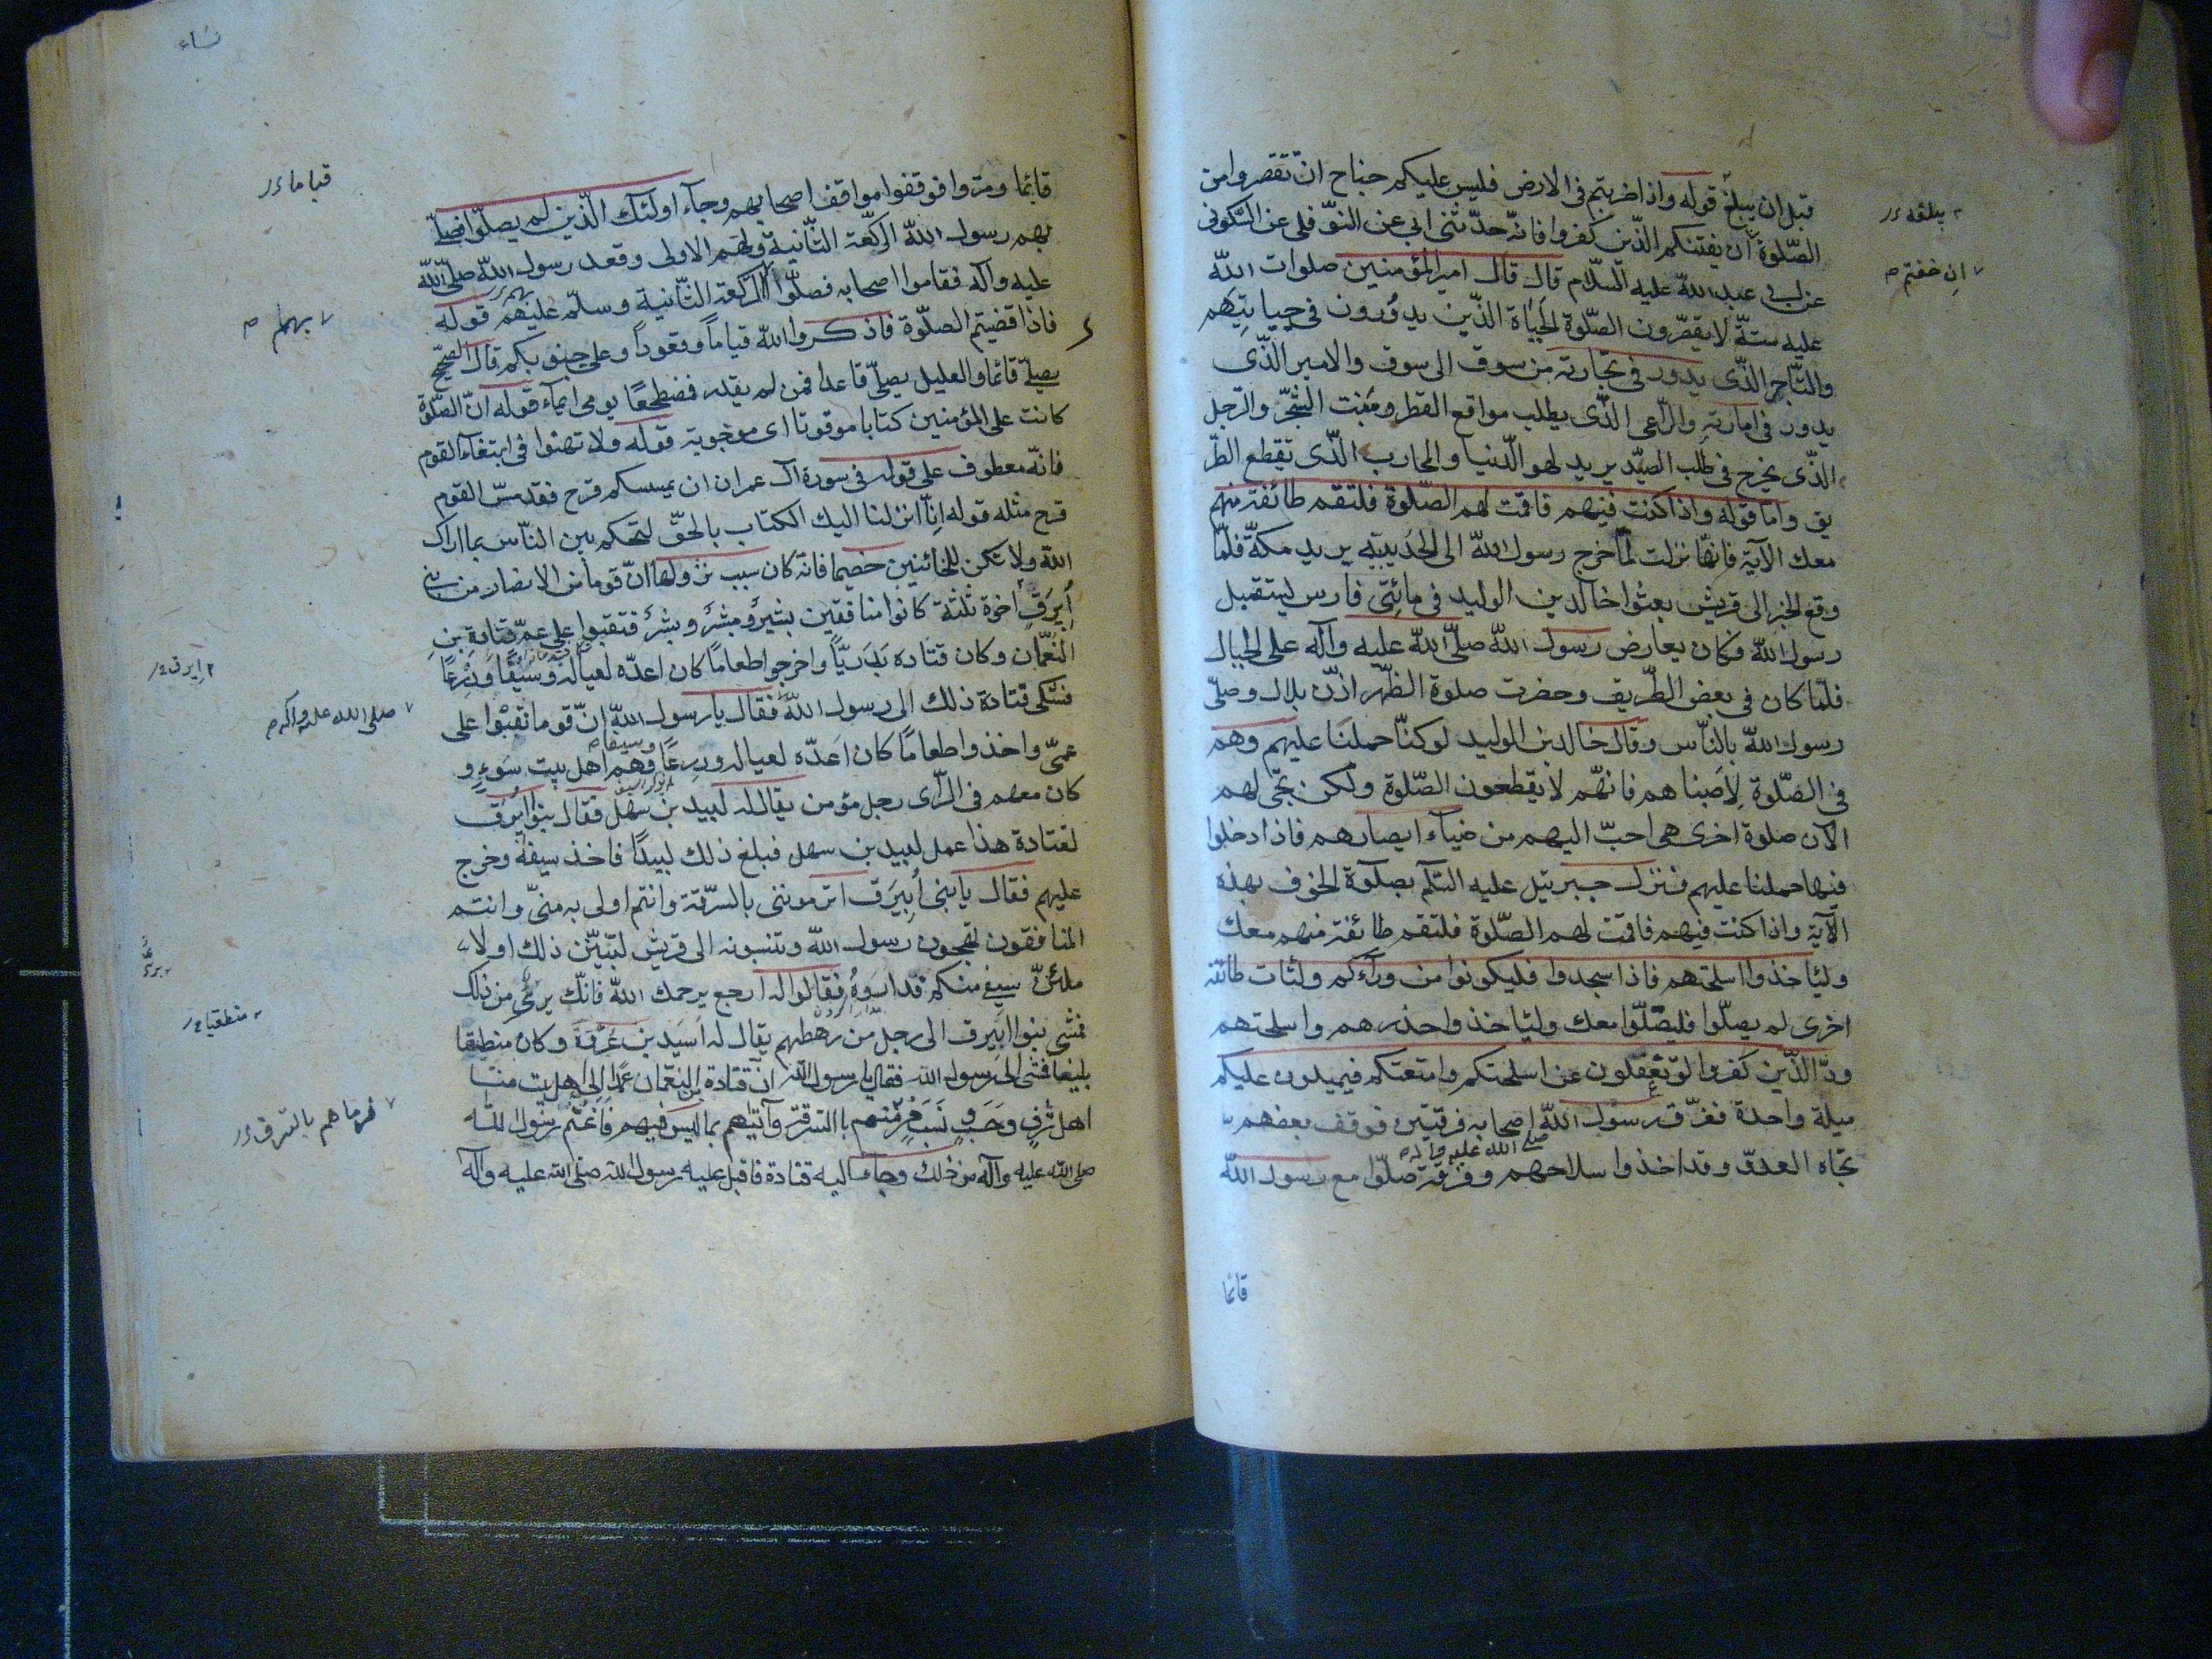 قبل ان يبلغ قوله واذا ضربتم فى الارض فليس عليكم جناح ان تقصروا من
الصّلوة ان يفتنكم الذّين كفروا فانّه حدّثنى ابى عن النوّفلى عن السّكونى
عن ابى عبد الله عليه السّلام قال قال امير المؤمنين صلوات الله
عليه ستّة لا يقصّرون الصّلوة الجباة الذّين يدورون فى جبايتهم
والتّاجر الذّى يدور فى تجارته من سوق الى سوق والامير الذّى
يدور فى امارته والرّاعى الذّى يطلب مواقع القطر ومنبت الشّجر والرّجل
الذّى يخرج فى طلب الصيّد يريد لهو الدّنيا والمحارب الذّى تقطع الطّر
يق واما قوله واذا كنت فيهم فاقمت لهم الصّلوة فلتقم طائفة منهم
معك الآية فانهّا نزلت لمّا خرج رسول الله الى الحديبيّه يريد مكّة فلمّا
وقع الخبر الى قريش بعثوا خالد بن الوليد فى مائتى فارس ليستقبل
رسول الله فكان يعارض رسول الله صلّى الله عليه وآله على الجبال
فلمّا كان فى بعض الطّريق وحضرت صلوة الظّهر اذّن بلال وصلّى
رسول الله بالنّاس وقال خالد بن الوليد لو كنّا حملنا عليهم وهم
فى الصّلوة لاصبناهم فانهّم لا يقطعون الصّلوة ولكن تجئ لهم
الآن صلوة اخرى هى احبّ اليهم من ضياء ابصارهم فاذا دخلوا
فيها حملنا عليهم فنزل جبرئيل عليه السّلم بصلوة الخوف بهذه
الآية واذا كنت فيهم فاقمت لهم الصّلوة فلتقم طائفة منهم معك
وليأخذوا اسلحتهم فاذا سجدوا فليكونوا من ورآءكم ولتات طائفة
اخرى لم يصلّوا فليصّلوا معك وليأخذوا حذرهم واسلحتهم
ودّ الذّين كفروا لو تغفلون عن اسلحتكم وامتعتكم فيميلون عليكم
ميلة واحدة ففرّق رسول الله اصحابه فرقتين فوقف بعضهم
صلى الله عليه وآله م
تجاه العدوّ وقد اخذوا سلاحهم وفرقة صلّوا مع رسول الله
قائما
ان خفتم م
نساء
قائما ومرّوا فوقفوا مواقف اصحابهم وجآء اولئك الّذين لم يصلّوا فصلّى
بهم رسول الله الركعّة الثّانية ولهم الاولى وقعد رسول الله صلّى الله
عليه وآله فقاموا اصحابه فصلّوا الركعة الثّانية وسلّم عليهم قوله
فاذا قضيتم الصلّوة فاذكروا الله قياماً وقعوداً وعلى جنوبكم قال الصّحيح
يصلّى قائما والعليل يصلّى قاعدا فمن لم يقدر فمضطجعًا يومى ايمآء قوله انّ الصّلوة
كانت على المؤمنين كتابا موقوتا اى موجوبة قوله ولا تهنوا فى ابتغاء القوم
فانّه معطوف على قوله فى سورة آل عمران ان يمسسكم قرح فقد مسّ القوم
قرح مثله قوله انّا انزلنا اليك الكتاب بالحقّ لتحكم بين النّاس بما اراك
الله ولا تكن للخائنين خصيما فانّه كان سبب نزولها انّ قوما من الانصار من بنى
أبيرق اخوة ثلثة كانوا منافقين بشير ومبشر وبشر فنقبوا على عمّ قتادة بن
النّعمان وكان قتاده بدريّاً واخرجوا طعاماً كان اعدّه لعياله وسيفًا ودرعًا
فشكى قتادة ذلك الى رسول الله فقال يا رسول الله انّ قوما نقبوا على
عمّى واخذوا طعامًا كان اعدّه لعياله ودرعًا وهم اهل بيت سوء و
وسيفا م
كان معهم فى الرّأى رجل مؤمن يقال له لبيد بن سهل فقال بنوا ابيرق
لقتادة هذا عمل لبيد بن سهل فبلغ ذلك لبيدًا فاخذ سيفه وخرج
عليهم فقال يا بنى أبيرق اترمونى بالسّرقة وانتم اولى به منّى وانتم
المنافقون تهجون رسول الله وتنسبونه الى قريش لتبيّنن ذلك او لا
ملئنّ سيفى منكم فداروه فقالوا له ارجع يرحمك الله فانّك برئ من ذلك
فمشى بنوا ابيرق الى رجل من رهطهم يقال له اسيد بن عروة وكان منطيقا
بليغا فمشى الى رسول الله فقال يا رسول الله انّ قتادة بن النعمان عمد الى اهل بيت منا
اهل شرف وحسب ونسب فرمّهم باالسّرقة وأتيهم بما ليس فيهم فاغتم رسول الله
صلى الله عليه وآله من ذلك وجاء اليه قتادة فاقبل عليه رسول الله صلى الله عليه وآله
قياما
بهم م
ابيرق
صلى الله عليه وآله م
منطقيا
فرماهم بالسرق